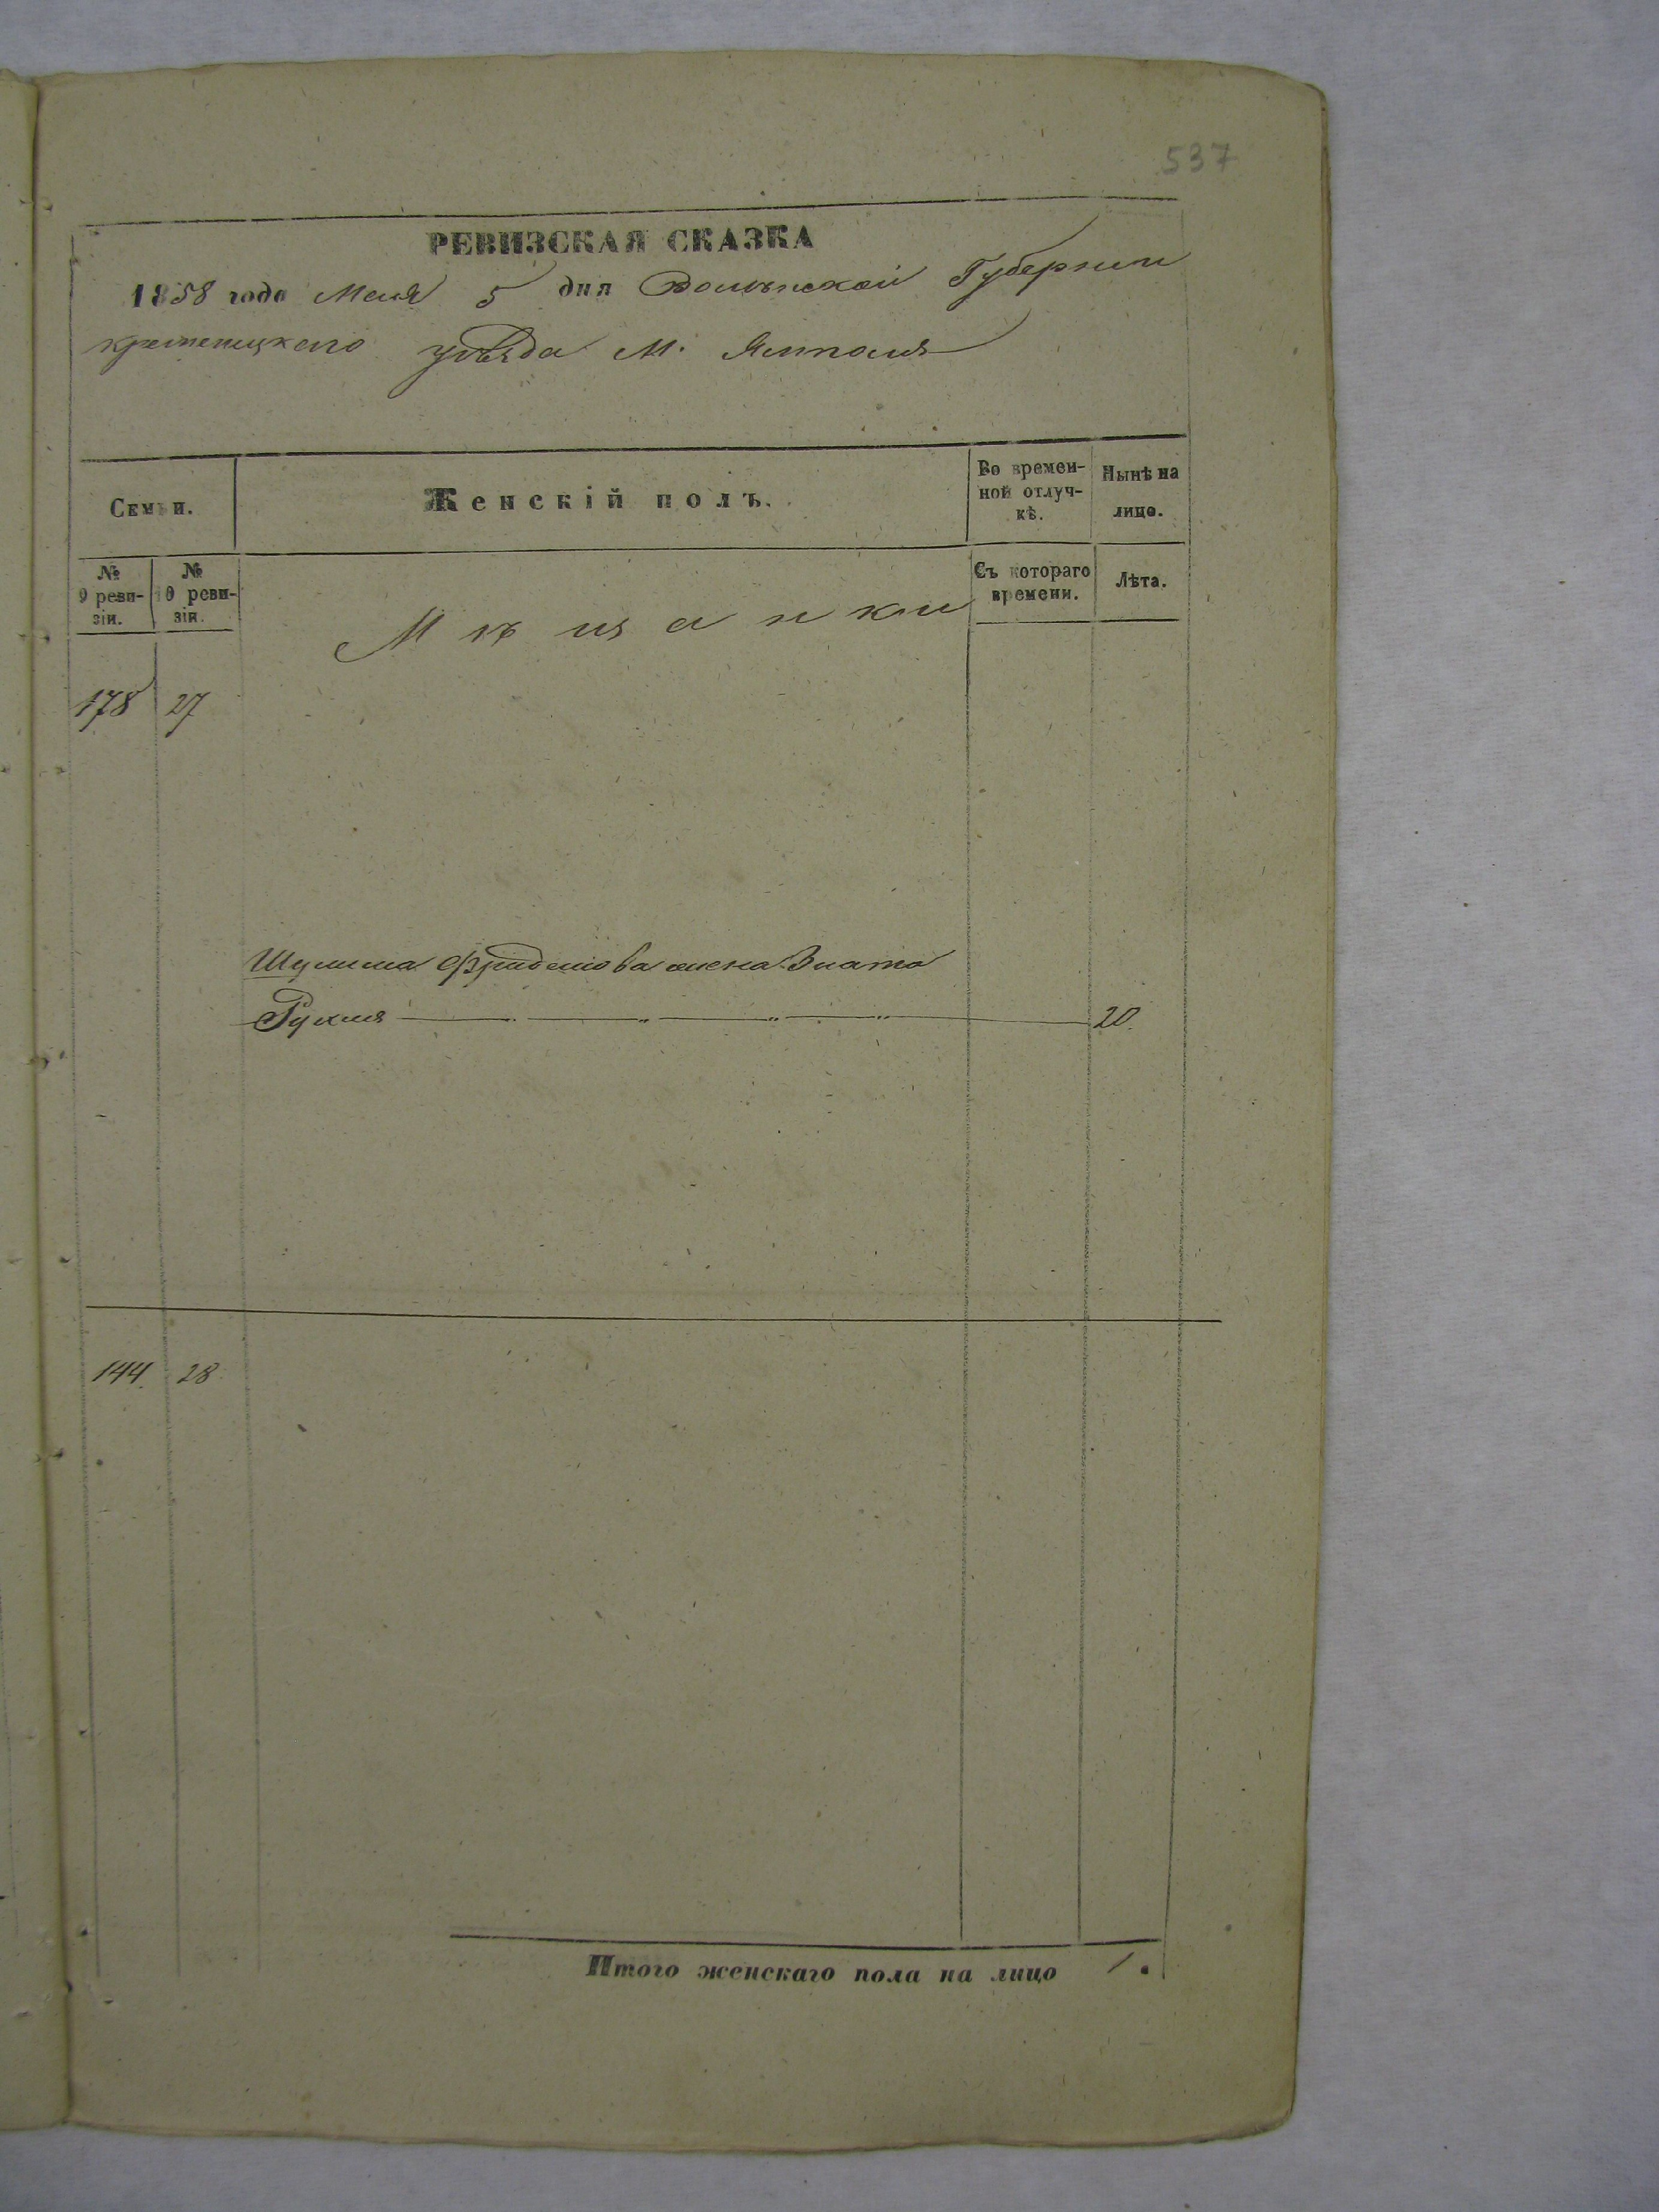 537
РЕВИЗСКАЯ СКАЗКА
1858 года Мая 5 дня Волынской Губернии
кременецкого уѣзда М. Ямполя
Семьи.
Женскій полъ.
Во времен-
ной отлуч-
кѣ.
Нынѣ на
лицо.
№
9 реви-
зіи.
№
10 реви-
зіи.
Мѣщанки
Съ котораго
времени.
Лѣта.
178 27
Шулима Фриделева жена Злата
Рухля 20.
144. 28
Итого женскаго пола на лицо 1.